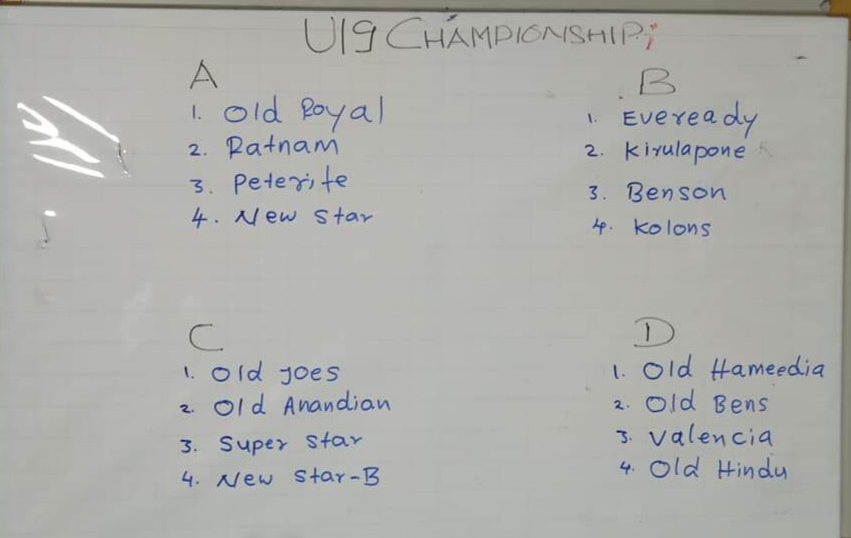 U19 CHAMPIONSHIP;
A
1. Old Royal
2. Ratnam
3. Peterite
4. New Star
B
1. Eveready
2. Kirulapone
3. Benson
4. Kolons
C
1. Old Joes
2. Old Anandian
3. Super Star
4. New Star-B
D
1. Old Hameedia
2. Old Bens
3. Valencia
4. Old Hindu